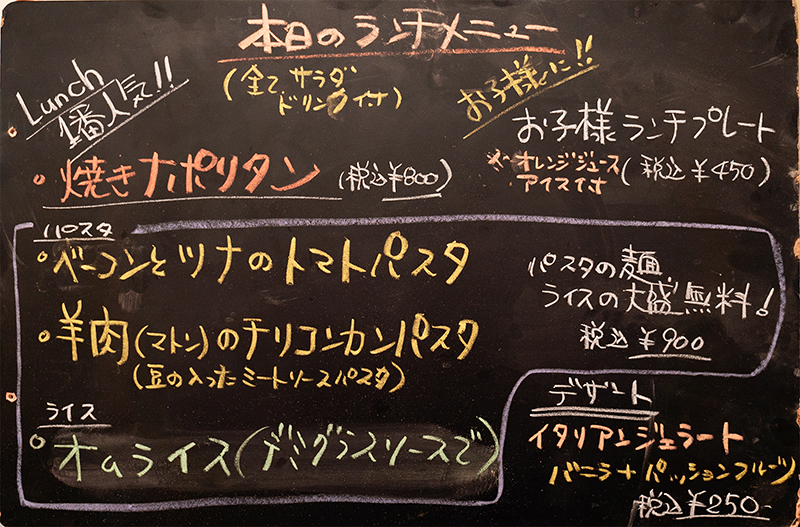 本日のランチメニュー
(全て サラダ
ドリンク付)
Lunch
1番人気!!
お子様に!!
お子様ランチプレート
※オレンジジュース
アイス付
(税込¥450)
焼きナポリタン (税込¥800)
パスタ
ベーコンとツナのトマトパスタ
羊肉(マトン)のチリコンカンパスタ
(豆の入ったミートソースパスタ)
パスタの麺、
ライスの大盛 無料!
税込 ¥900
ライス
オムライス(デミグラスソースで)
デザート
イタリアンジェラート
バニラ+パッションフルーツ
税込¥250-